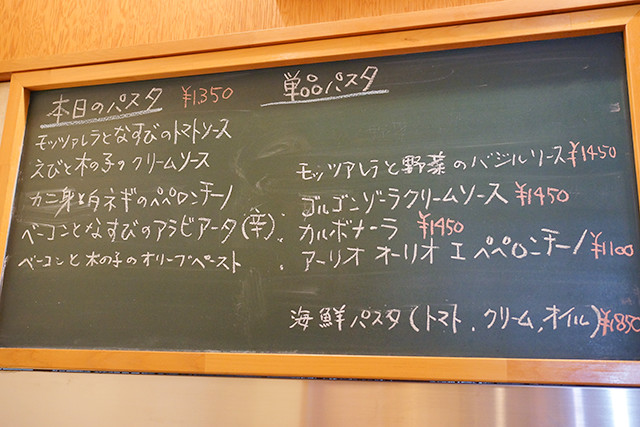 本日のパスタ ¥1,350
モッツァレラとなすびのトマトソース
えびと木の子のクリームソース
カニ身と白ネギのペペロンチーノ
ベーコンとなすびのアラビアータ(辛)
ベーコンと木の子のオリーブペースト
単品パスタ
モッツアレラと野菜のバジルソース¥1450
ゴルゴンゾーラクリームソース ¥1450
カルボナーラ ¥1450
アーリオ オーリオ エ ペペロンチーノ¥1100
海鮮パスタ(トマト、クリーム、オイル)¥1850